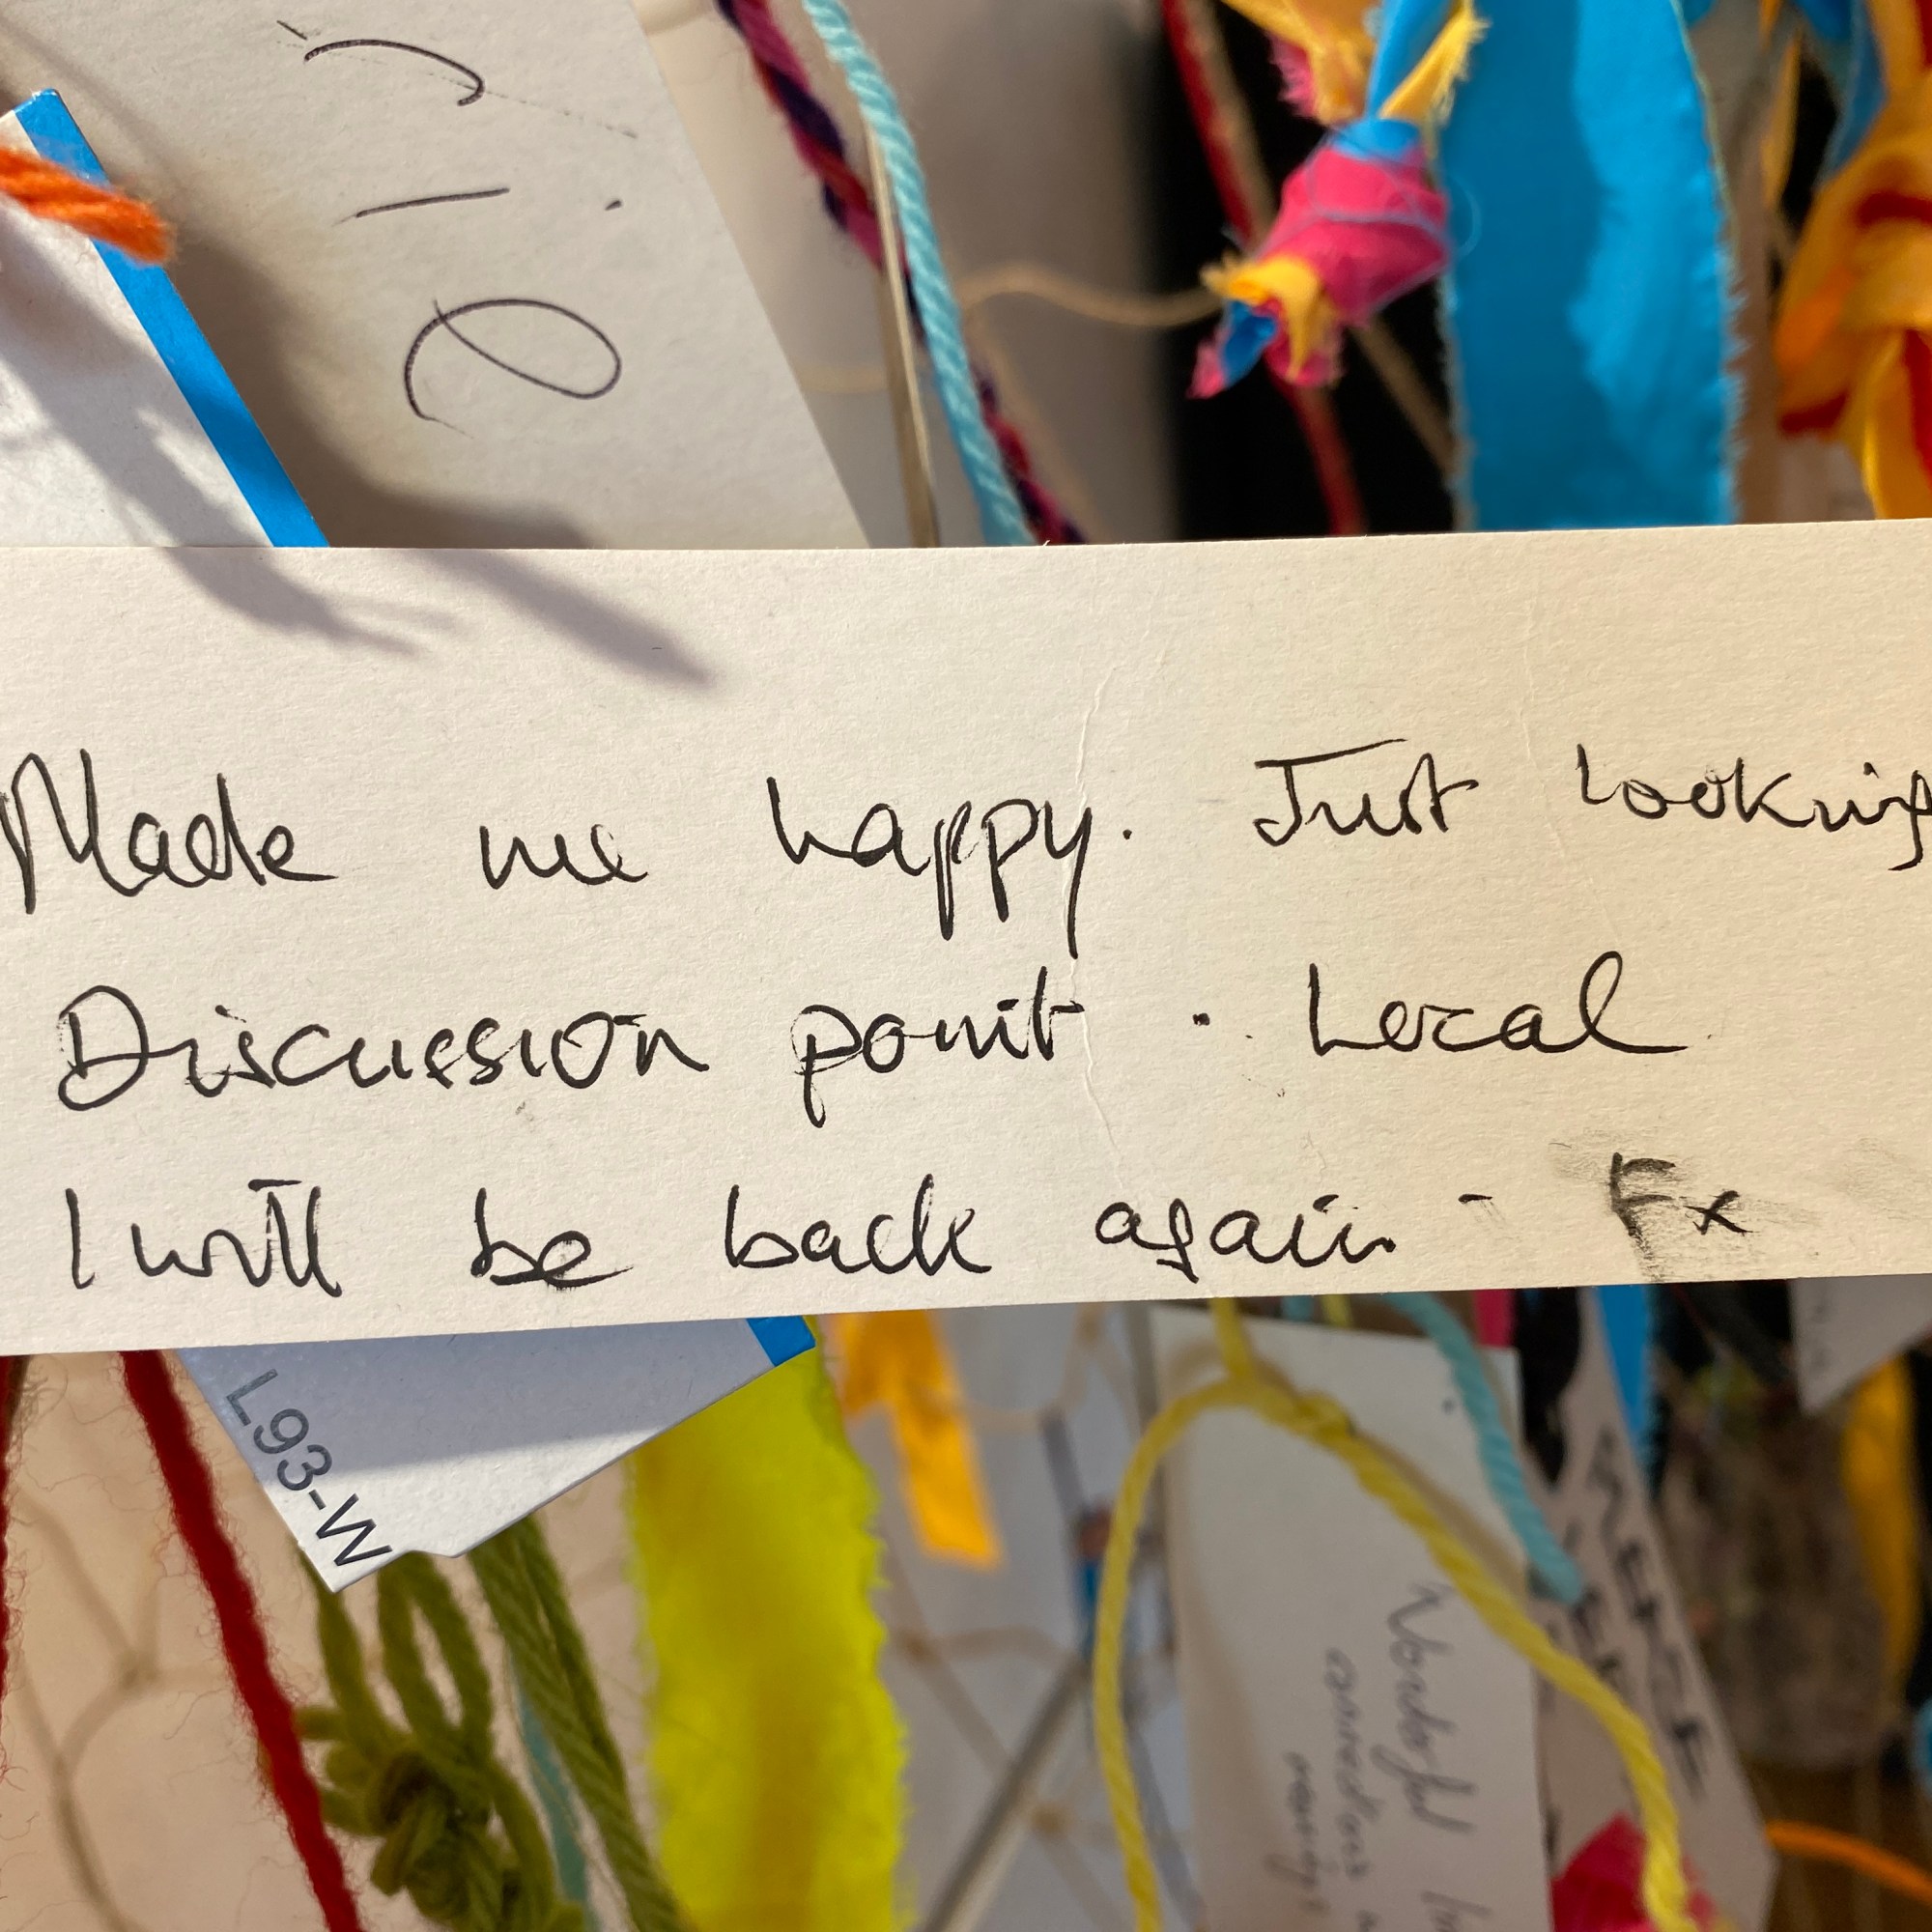 Made me happy. Just looking
Discussion point. Local
I will be back again - Fx
L93-W
Wonderful
connections